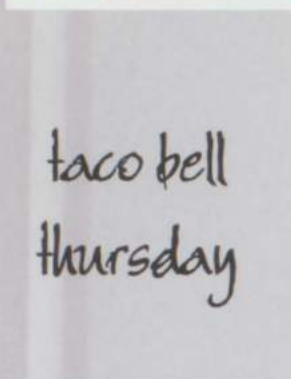 taco bell
thursday